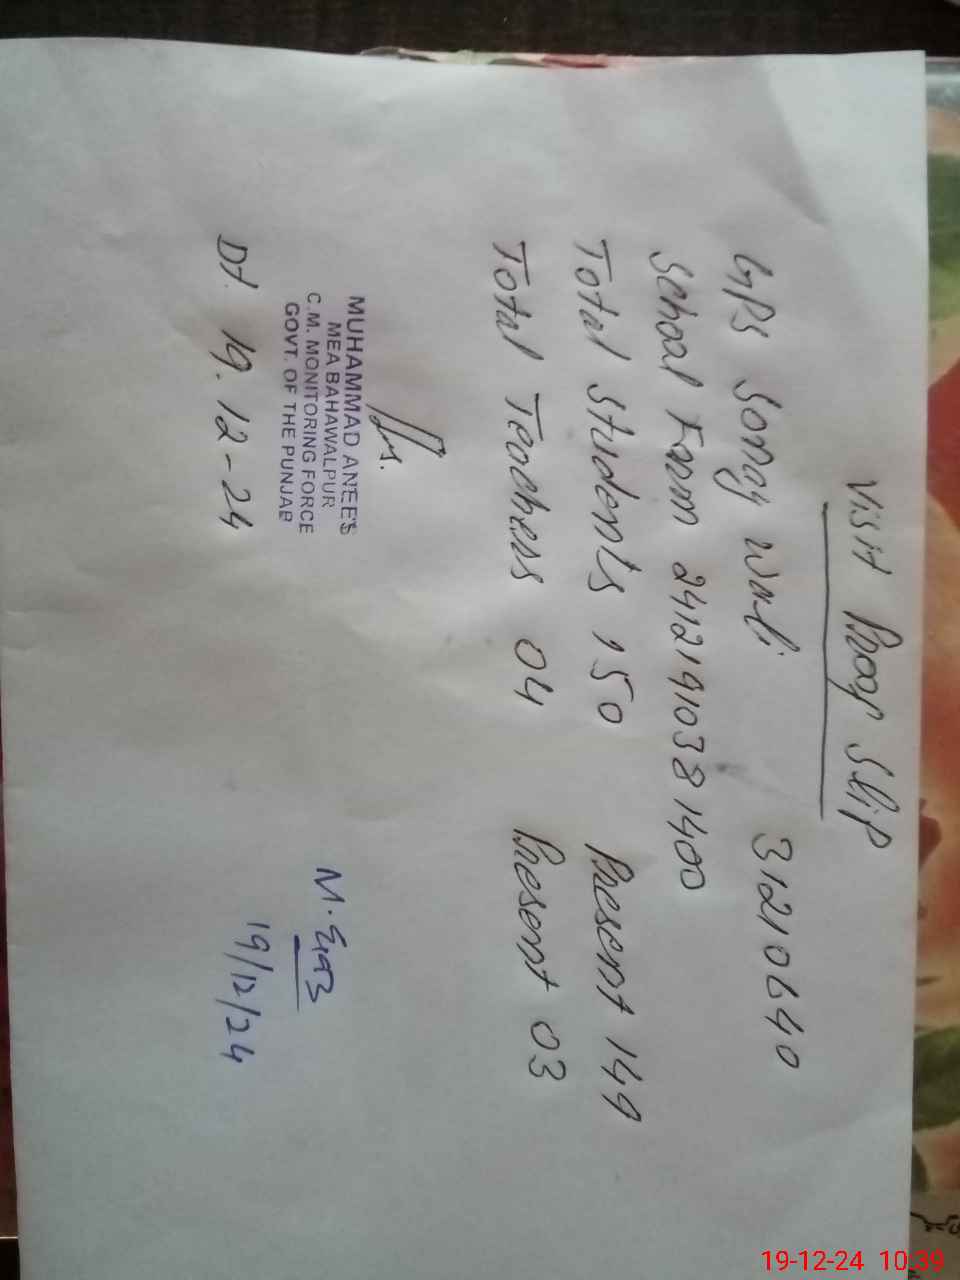 Visit Proof Slip
GPS Songy Wali 31210640
School Form 24121910381400
Total Students 150 Present 149
Total Teachers 04 Present 03
MUHAMMAD ANEES
MEA BAHAWALPUR
C.M. MONITORING FORCE
GOVT. OF THE PUNJAB
Dt. 19.12-24
19/12/24
19-12-24 10:39